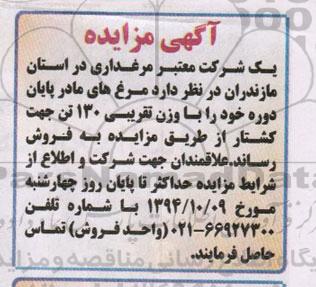 آگهی مزایده
یک شرکت معتبر مرغداری در استان
مازندران در نظر دارد مرغ های مادر پایان
دوره خود را با وزن تقریبی ۱۳۰ تن جهت
کشتار از طریق مزایده به فروش
رساند.علاقمندان جهت شرکت و اطلاع از
شرایط مزایده حداکثر تا پایان روز چهارشنبه
مورخ ۱۳۹۴/۱۰/۰۹ با شماره تلفن
۰۲۱-۶۶۹۲۷۳۰۰ (واحد فروش) تماس
حاصل فرمایند.